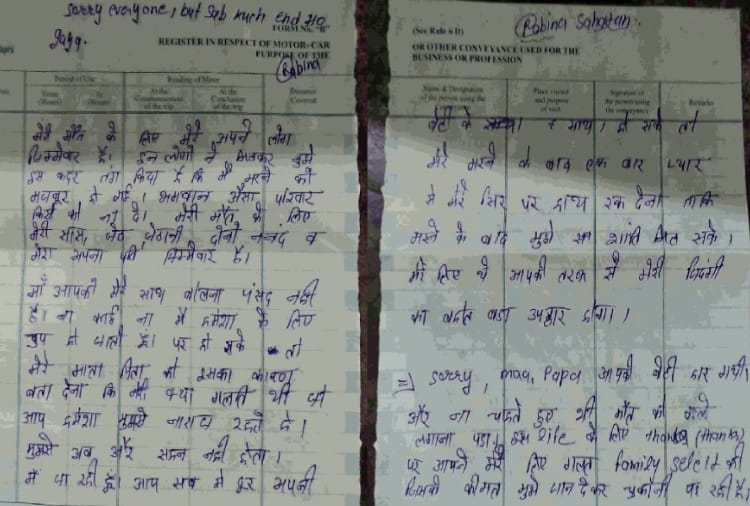 sorry everyone, but sab kuch end ho
gaya.
FORM No. "B"
REGISTER IN RESPECT OF MOTOR-CAR
PURPOSE OF THE
Period of Use
Reading of Meter
From
(Hours)
To
(Hours)
At the
Commencement
of the trip
At the
Conclusion
of the trip
Distance
Covered
मेरी मौत के लिए मेरे अपने लोग
जिम्मेवार है। इन लोगों ने मिलकर मुझे
इस कदर तंग किया है कि मैं मरने को
मजबूर हो गई। भगवान ऐसा परिवार
किसी को ना दे। मेरी मौत के लिए
मेरी सास, जेठ जेठानी दोनो ननंद व
मेरा अपना पति जिम्मेवार है।
माँ आपको मेरे साथ बोलना पंसद नही
है। ना मैं हमेशा के लिए
चुप हो जाती हूं। पर हो सके तो
मेरे माता पिता को इसका कारण
बता देना कि मेरी क्या गलती थी जो
आप हमेशा मुझसे नाराज रहते थे।
मुझसे अब और सहन नही होता।
मैं जा रही हूं। आप सब से दूर अपनी
(See Rule 6 D)
OR OTHER CONVEYANCE USED FOR THE
BUSINESS OR PROFESSION
Name & Designation
of the person using the
Place visited
and purpose
of visit
Signature of
the person using
the conveyance
Remarks
बेटी के साथ। हो सके तो
मेरे मरने के बाद एक बार प्यार
से मेरे सिर पर हाथ रख देना ताकि
मरने के बाद मुझे शांति मिल सके।
मेरे लिए ये आपकी तरफ से मेरी जिंदगी
का बड़ा उपहार होगा।
⇒ sorry, maa, Papa आपकी बेटी हार गयी।
और ना चाहते हुए भी मौत को गले
लगाना पड़ा। इस life के लिए thanks (thanks)
पर आपने मेरे लिए गलत family select की
जिसकी कीमत मुझे जान देकर चुकानी पड़ रही है।